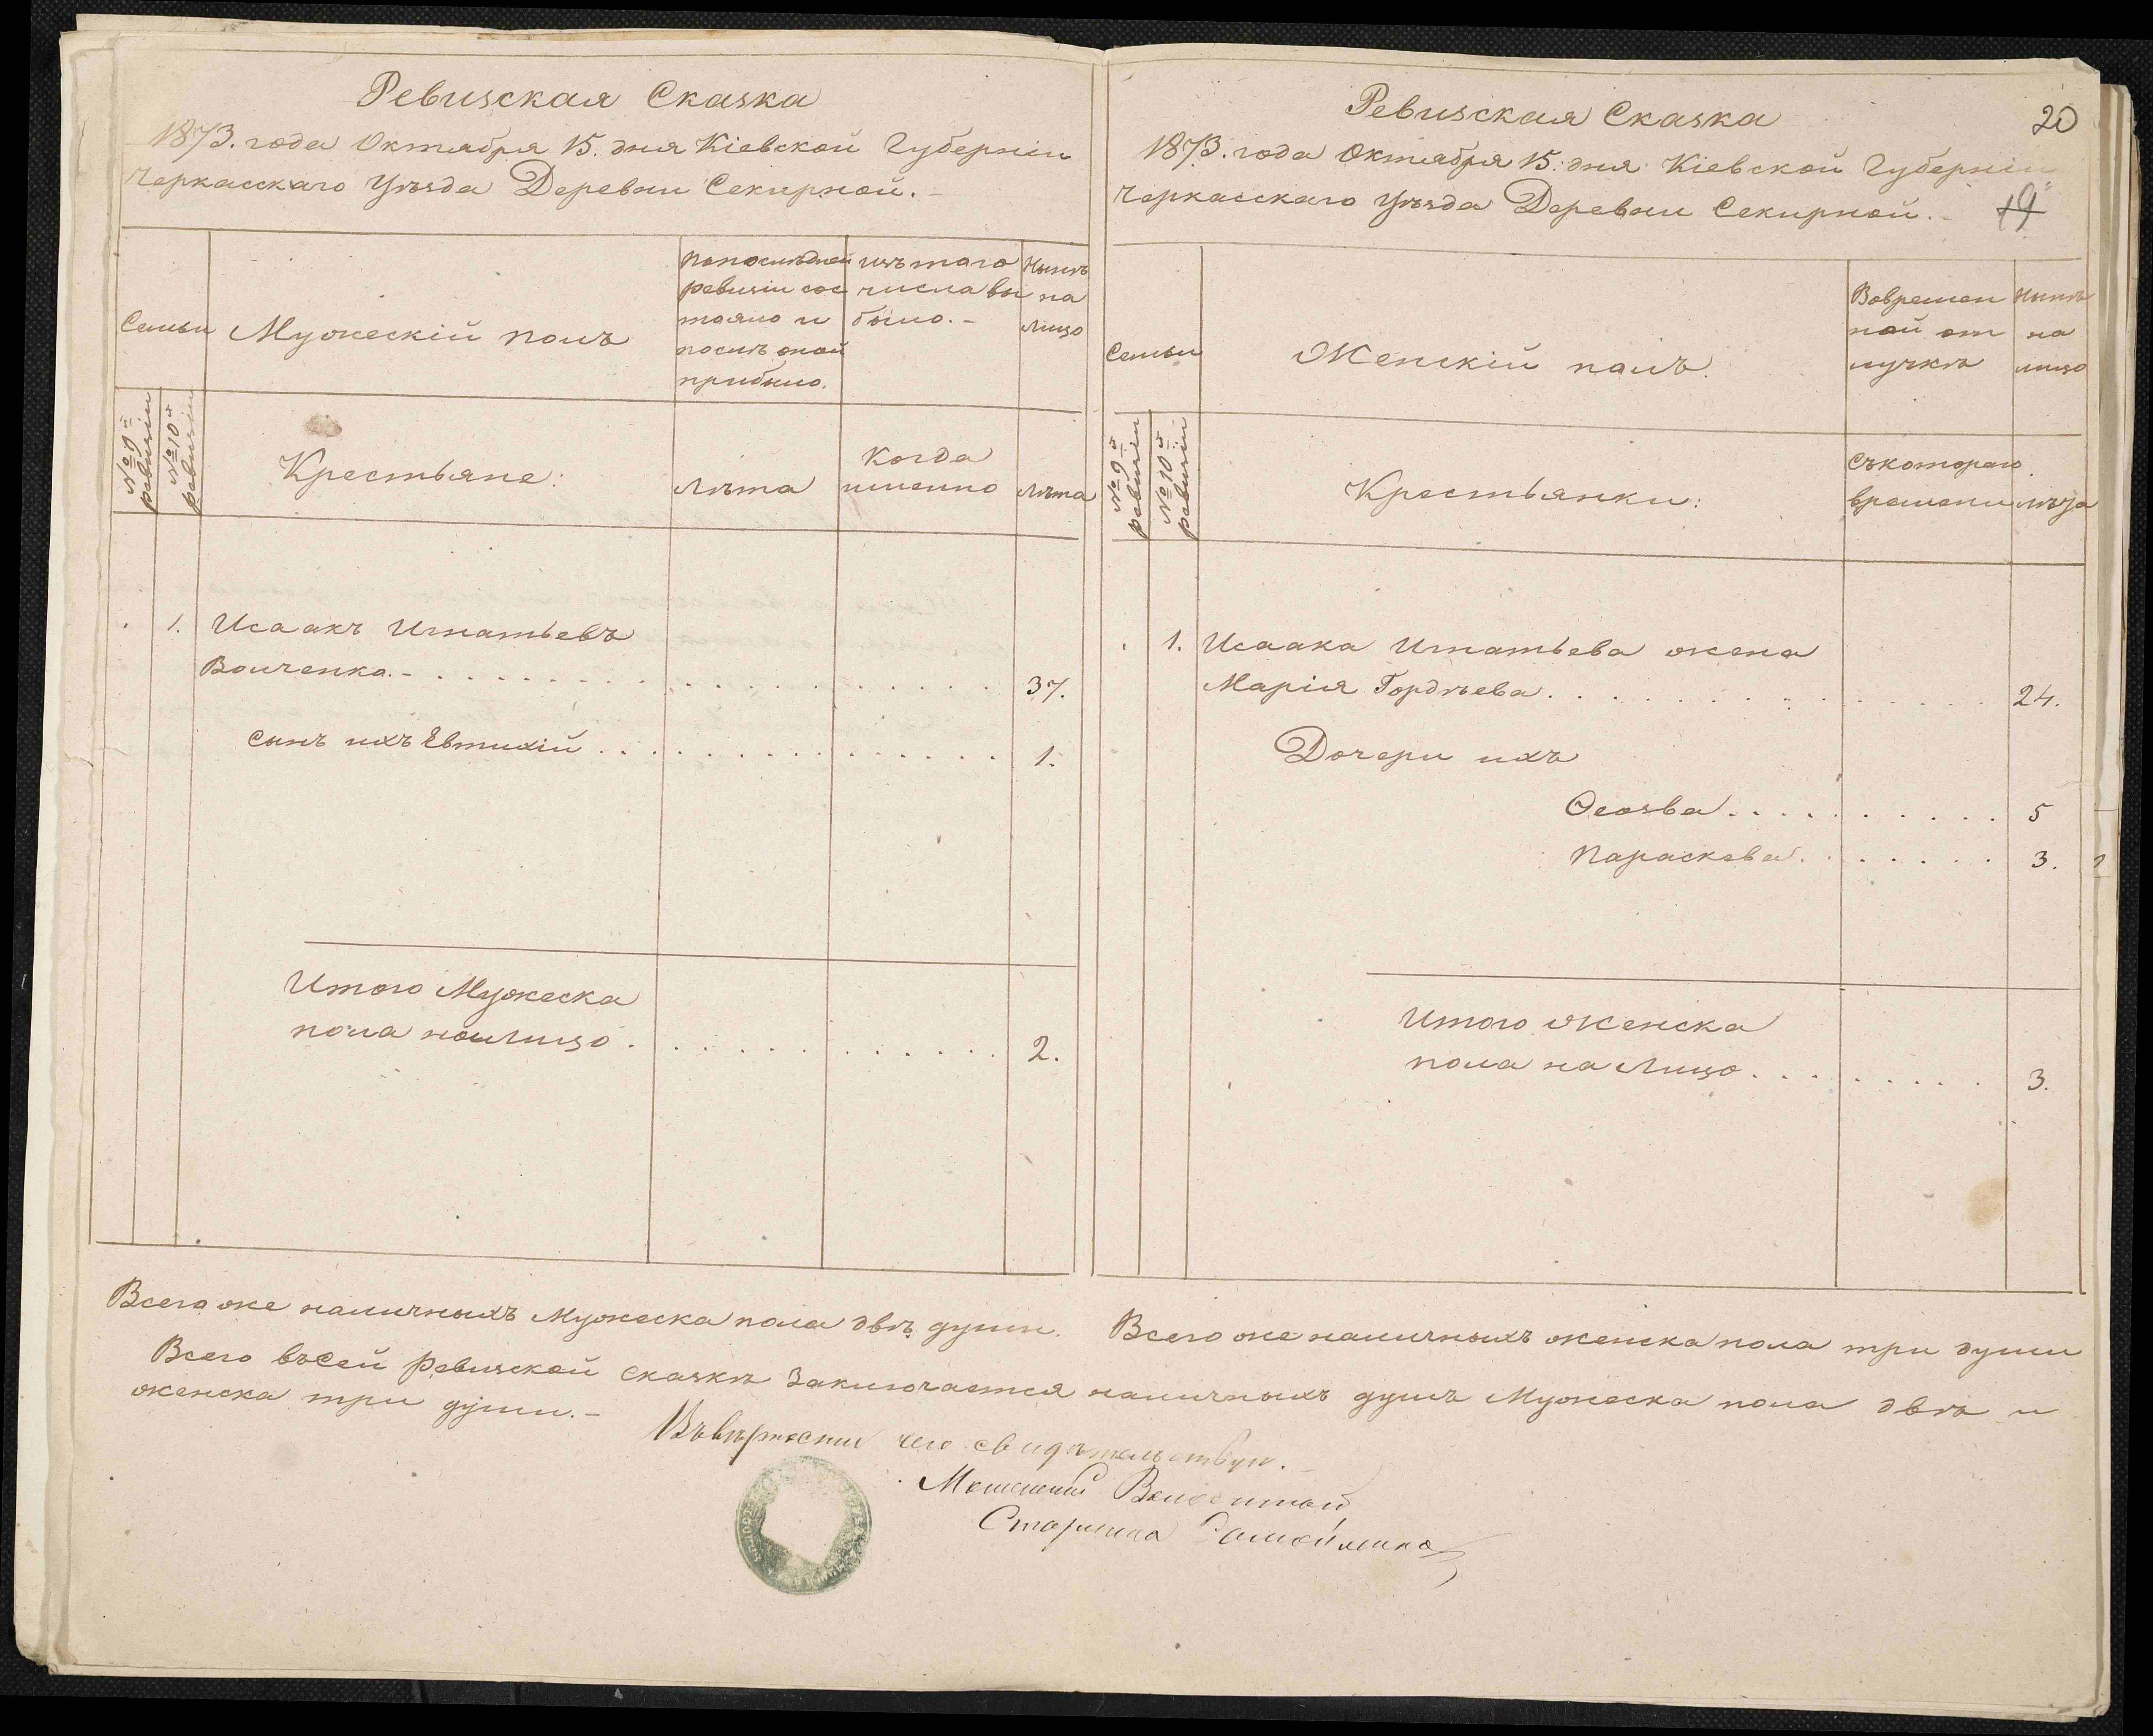 Ревизская Сказка
1873. года Октября 15. дня Кіевской Губерніи
Черкасскаго Уѣзда Деревни Секирной. –
Семьи
Мужескій полъ
по последней
ревизіи сос
тояло и
послѣ оной
прибыло.
изъ того
числа вы
было. –
Нынѣ
на
лицо
№ 9й
ревизіи
№ 10й
ревизіи
Крестьяне:
лѣта
Когда
именно
лѣта
1. Исаакъ Игнатьевъ
Волченко. – 37.
сынъ ихъ Евтихій 1.
Итого Мужеска
пола на лицо 2.
Всего же наличныхъ Мужеска пола двѣ души.
20
Ревизская Сказка
1873. года Октября 15. дня Кіевской Губерніи
Черкасскаго Уѣзда Деревни Секирной. –
19
Семьи
Женскій полъ.
Вовремен
ной от
лучкѣ
Нынѣ
на
лицо
№ 9й
ревизіи
№ 10й
ревизіи
Крестьянки:
Съ котораго
времени
лѣта
1. Исаака Игнатьева жена
Марія Гордѣева 24.
Дочери ихъ
Феозва 5
Параскева 3.
Итого Женска
пола на лицо 3.
Всего же наличныхъ женска пола три души
Всего въ сей ревизской сказкѣ заключается наличныхъ душъ Мужеска пола двѣ и
женска три души. –
Въ вѣрности чего свидѣтельствую. –
Волостной
Старшина Самойленко